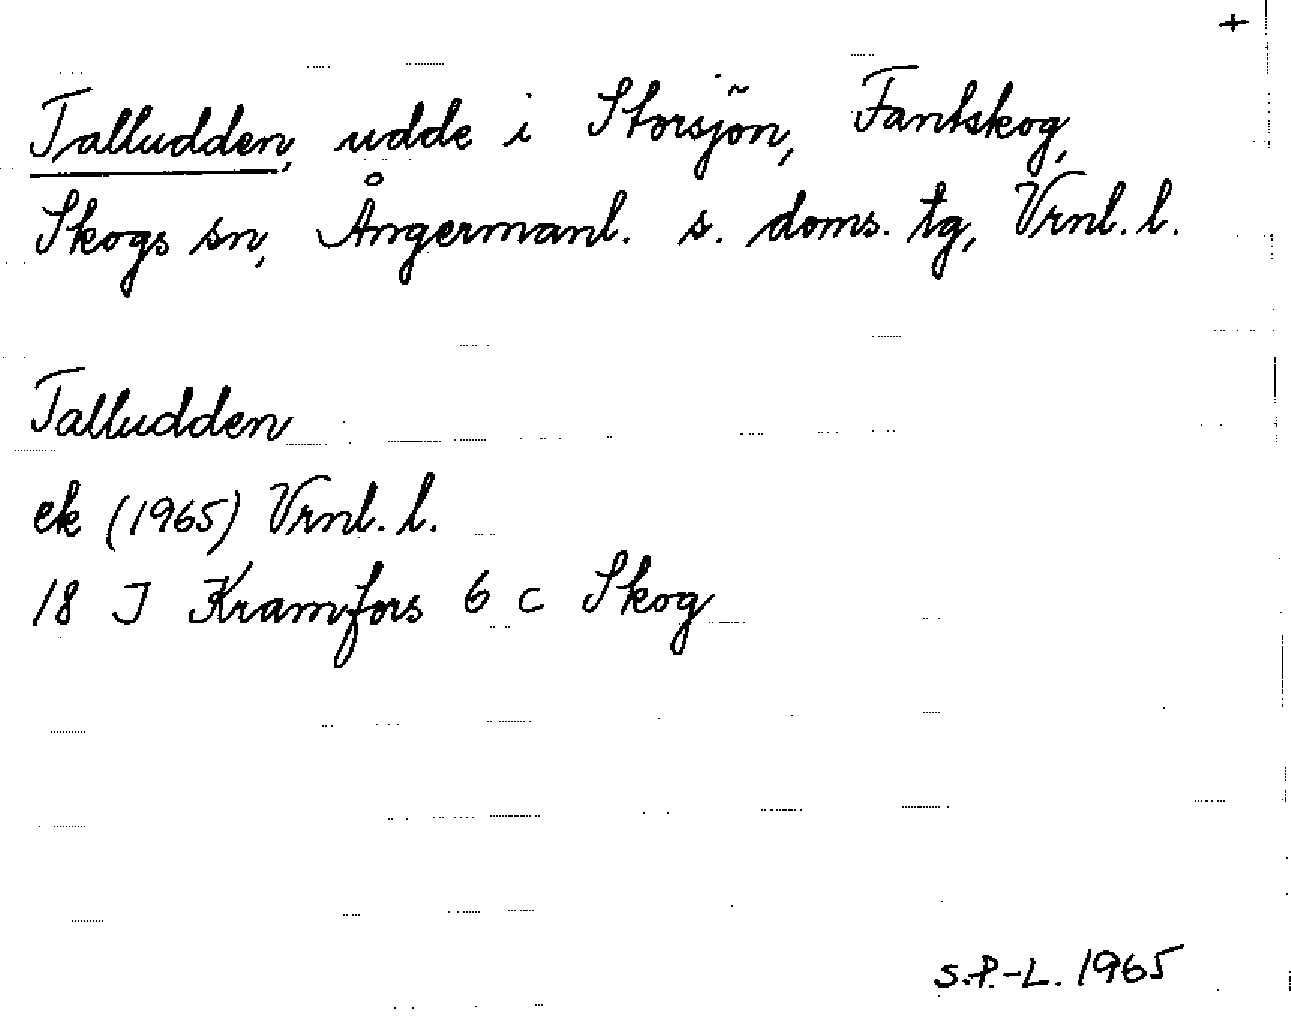 +
Talludden, udde i Storsjön, Fantskog,
Skogs sn, Ångermanl. s. doms. tg, Vrnl. l.
Talludden
ek (1965) Vrnl. l.
18 J Kramfors 6 c Skog
S.P.-L. 1965